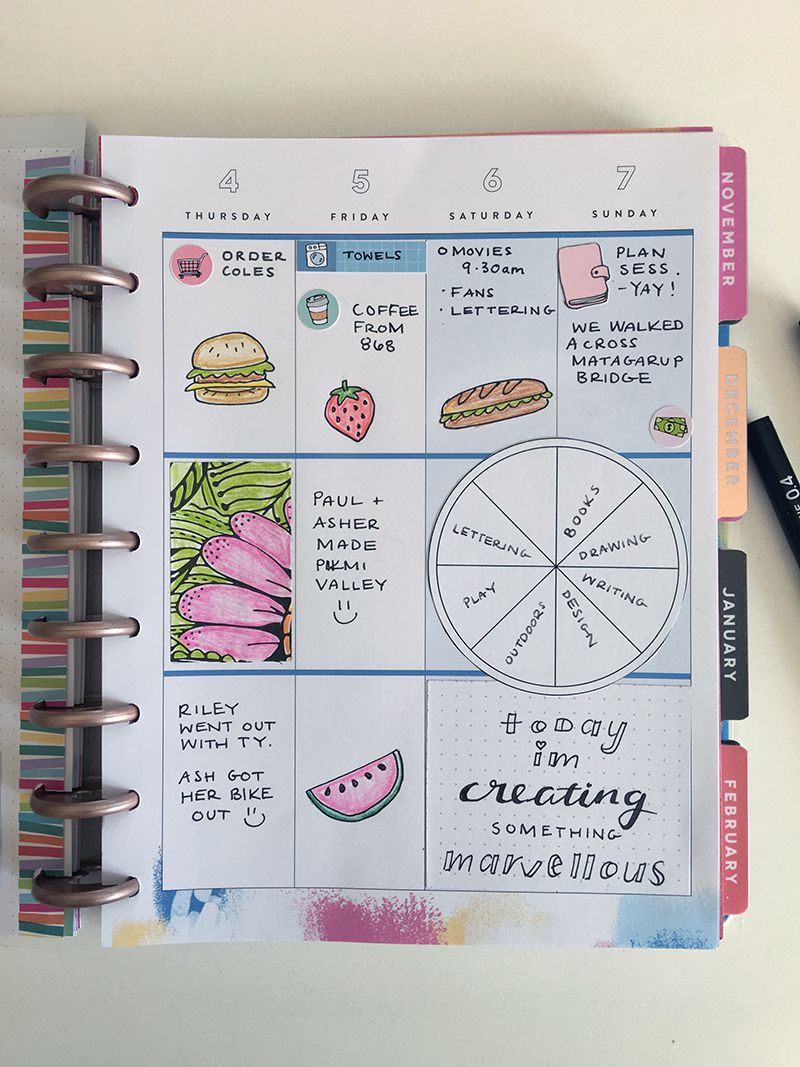 4
THURSDAY
5
FRIDAY
6
SATURDAY
7
SUNDAY
ORDER
COLES
TOWELS
COFFEE
FROM
868
MOVIES
9.30am
· FANS
· LETTERING
PLAN
SESS.
-YAY!
WE WALKED
ACROSS
MATAGARUP
BRIDGE
$
PAUL +
ASHER
MADE
PIKMI
VALLEY
LETTERING
BOOKS
DRAWING
WRITING
DESIGN
OUTDOORS
PLAY
RILEY
WENT OUT
WITH TY.
ASH GOT
HER BIKE
OUT
today
im
creating
SOMETHING
marvellous
NOVEMBER
DECEMBER
JANUARY
FEBRUARY
0.4